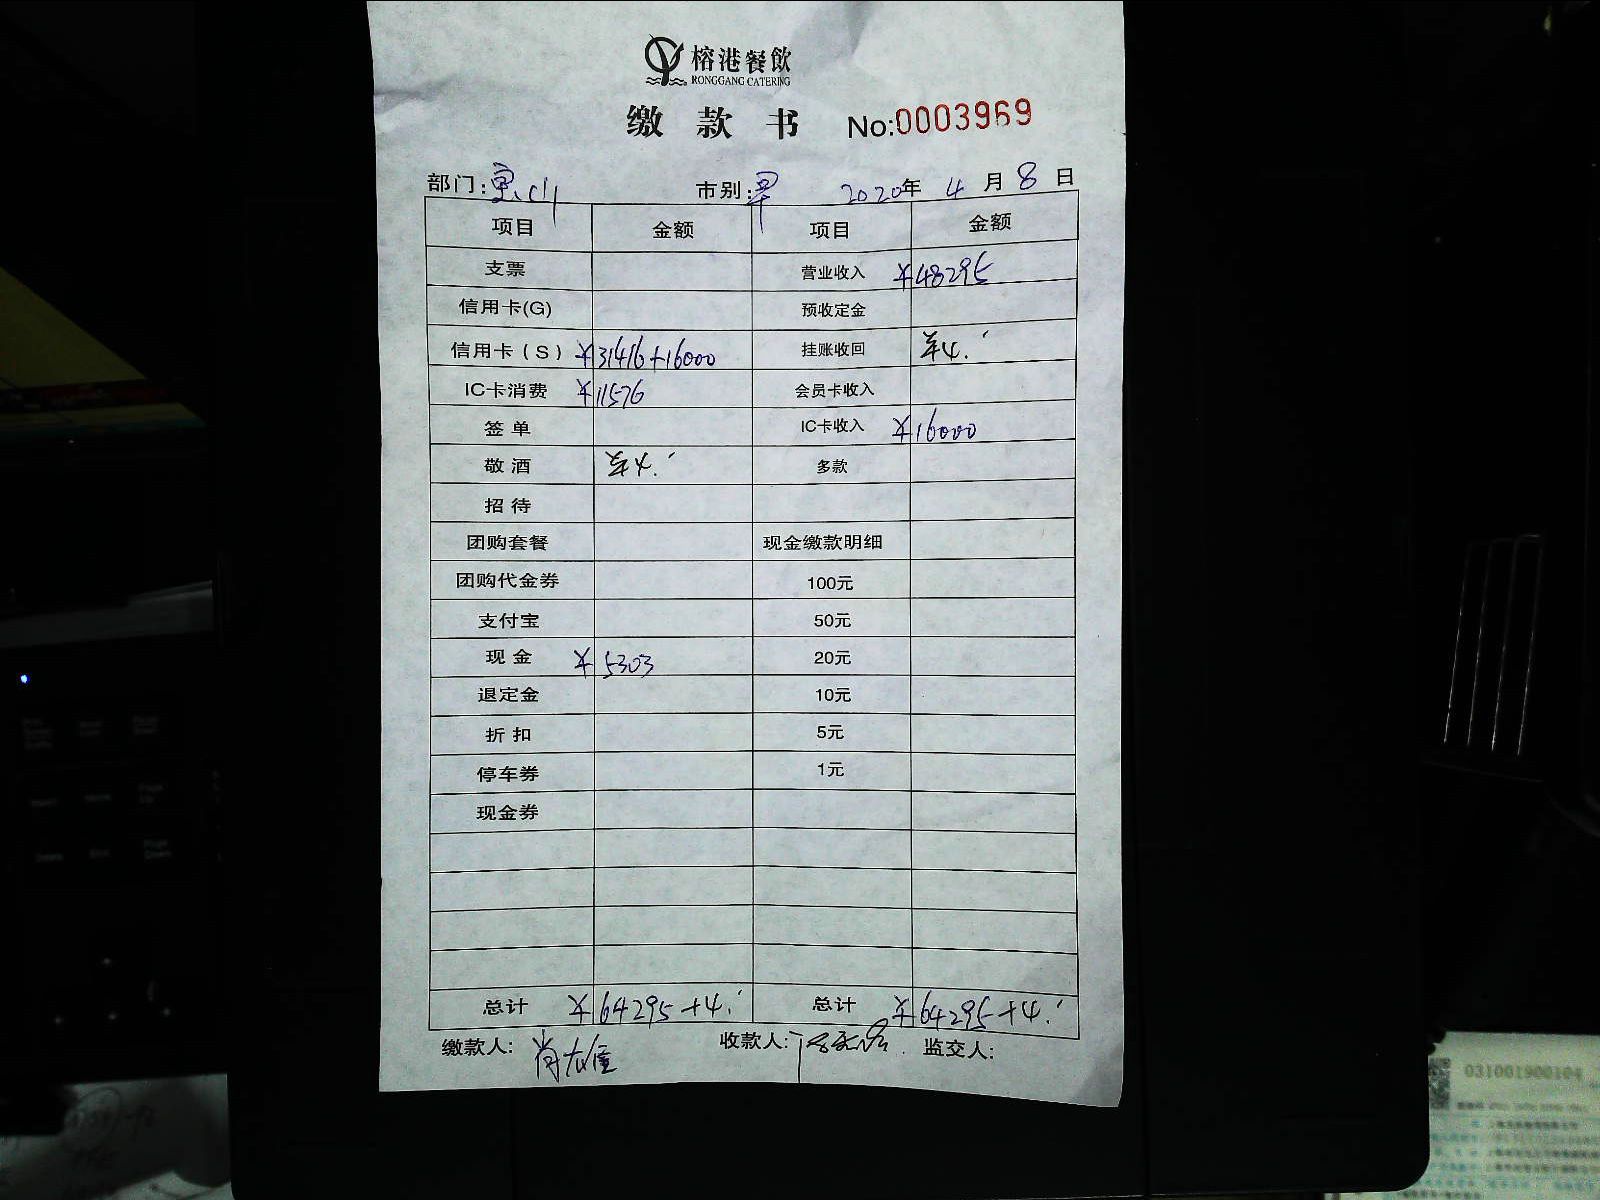 榕港餐飲
RONGGANG CATERING
缴款书 No:0003969
部门: 市别:早 2020年4月8日
项目 金额 项目 金额
支票 营业收入 ¥48295
信用卡(G) 预收定金
信用卡（S） ¥31416+16000 挂账收回 羊4.
IC卡消费 ¥11576 会员卡收入
签单 IC卡收入 ¥16000
敬酒 羊4. 多款
招待
团购套餐 现金缴款明细
团购代金券 100元
支付宝 50元
现金 ¥5303 20元
退定金 10元
折扣 5元
停车券 1元
现金券
总计 ¥64295+4. 总计 ¥64295+4.
缴款人: 收款人: 监交人:
031001900104